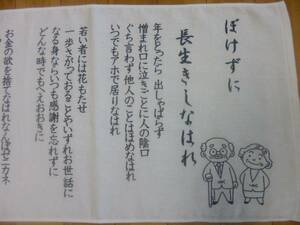 ぼけずに
長生きしなはれ
年をとったら 出しゃばらず
憎まれ口に泣きごとに人の陰口
ぐち言わず他人のことはほめなはれ
いつでもアホで居りなはれ
若い者には花もたせ
一歩さがっておることあいずれお世話に
なる身ならいつも感謝を忘れずに
どんな時でもへえおおきに
お金の欲を捨てなはれなんぼゼニカネ